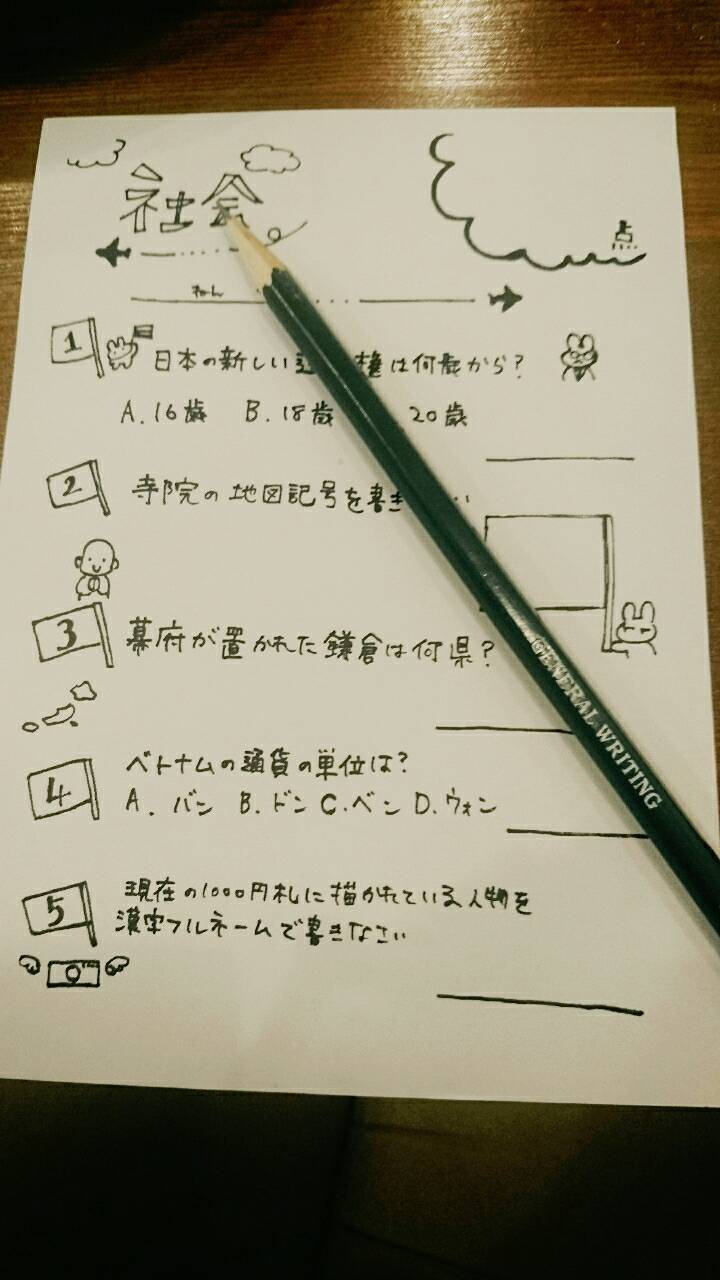 社会
点
ねん
1 日本の新しい選 権は何歳から?
A.16歳 B.18歳 20歳
2 寺院の地図記号を書き い
3 幕府が置かれた鎌倉は何県?
4 ベトナムの通貨の単位は?
A.バン B.ドン C.ベン D.ウォン
5 現在の1000円札に描かれている人物を
漢字フルネームで書きなさい
GENERAL WRITING